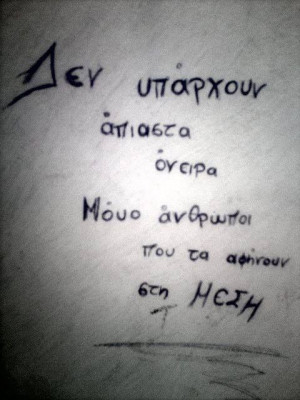 Δεν υπάρχουν
άπιαστα
όνειρα
Μόνο άνθρωποι
που τα αφήνουν
στη ΜΕΣΗ